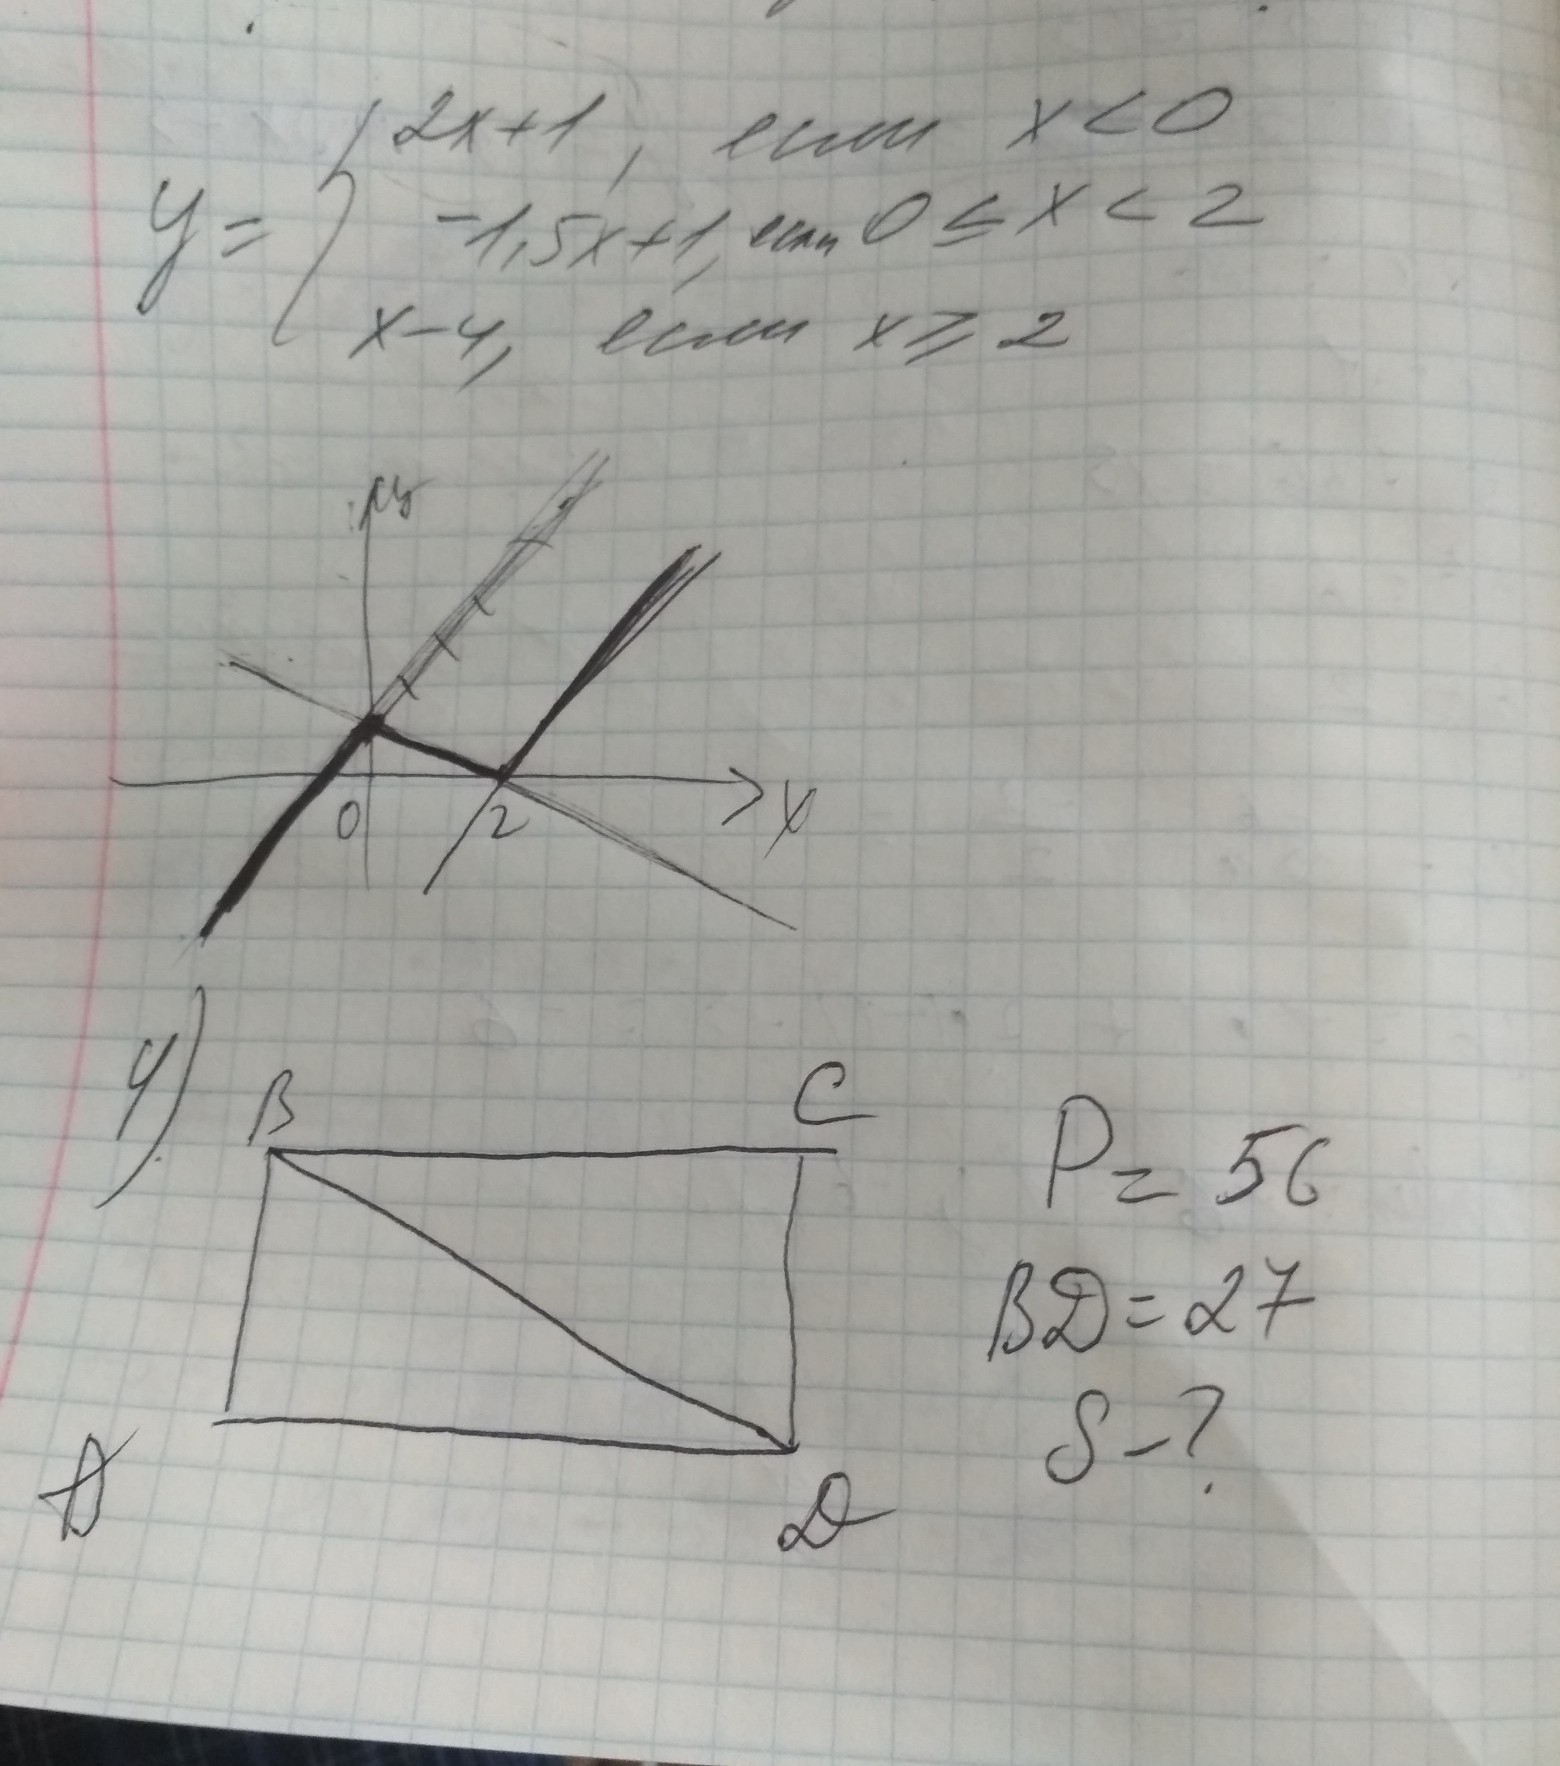 y = { 2x+1, если x < 0
-1,5x+1, если 0 ≤ x < 2
x-4, если x ≥ 2
y
0 2 x
4)
B C
P = 56
BD = 27
S - ?
A D